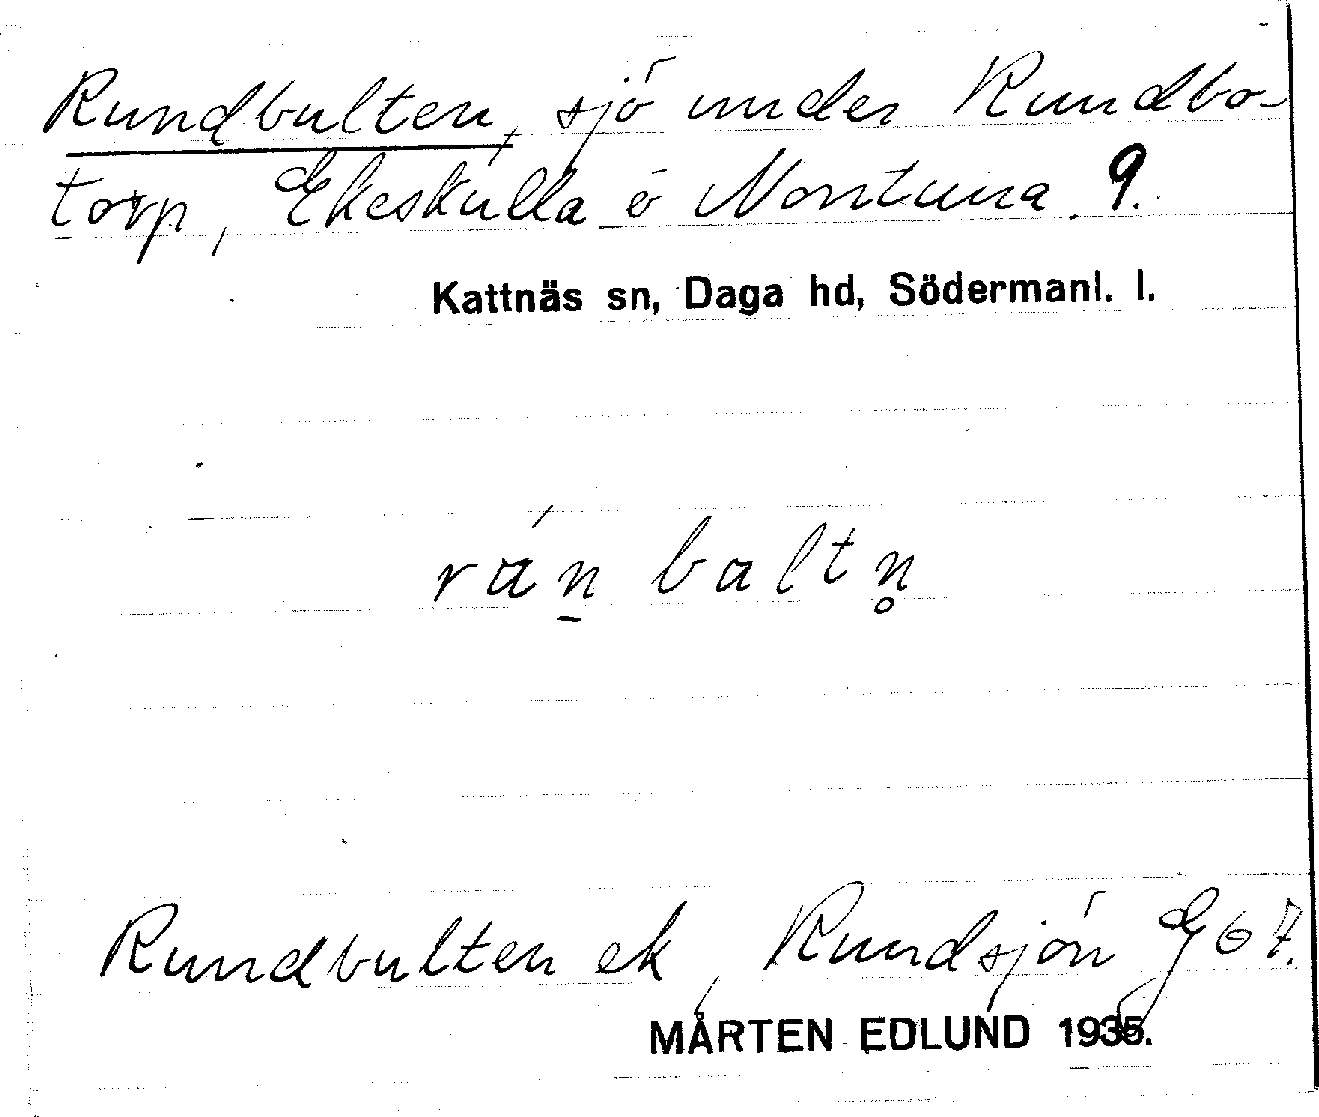 Rundbulten, sjö under Rundbo-
torp, Ekeskulla o Nontuna 9.
Kattnäs sn, Daga hd, Södermanl. l.
rán baltn̥
Rundbulten ek, Rundsjön G 67.
MÅRTEN EDLUND 1935.